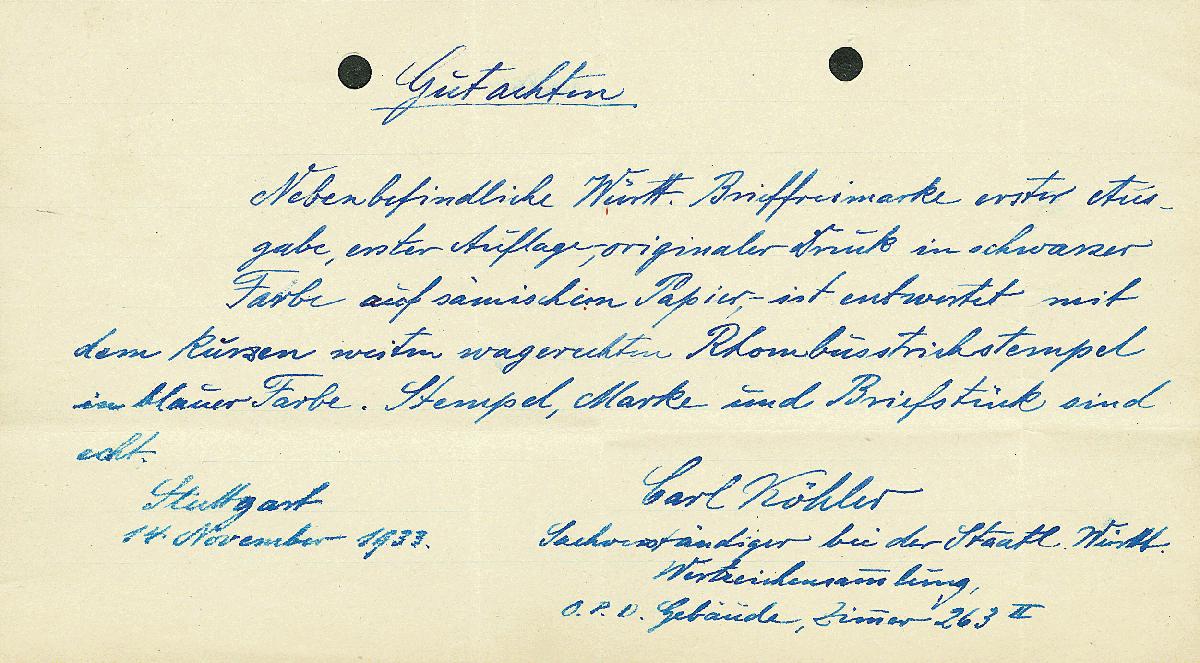 Gutachten
Nebenbefindliche Württ. Brieffreimarke erster Aus-
gabe, erster Auflage, originaler Druck in schwarzer
Farbe auf sämischem Papier, - ist entwertet mit
dem kurzen weiten wagerechten Rhombusstrichstempel
in blauer Farbe. Stempel, Marke und Briefstück sind
echt.
Stuttgart
14. November 1933.
Carl Köhler
Sachverständiger bei der Staatl. Württ.
Wertzeichensammlung,
O. P. D. Gebäude, Zimmer 263 II